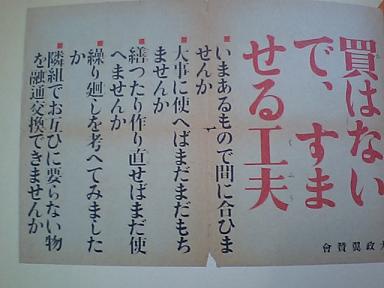 買はない
で、すま
せる工夫
大政翼賛会
いまあるもので間に合ひま
せんか
大事に使へばまだまだもち
ませんか
繕つたり作り直せばまだ使
へませんか
繰り廻しを考へてみました
か
隣組でお互ひに要らない物
を融通交換できませんか